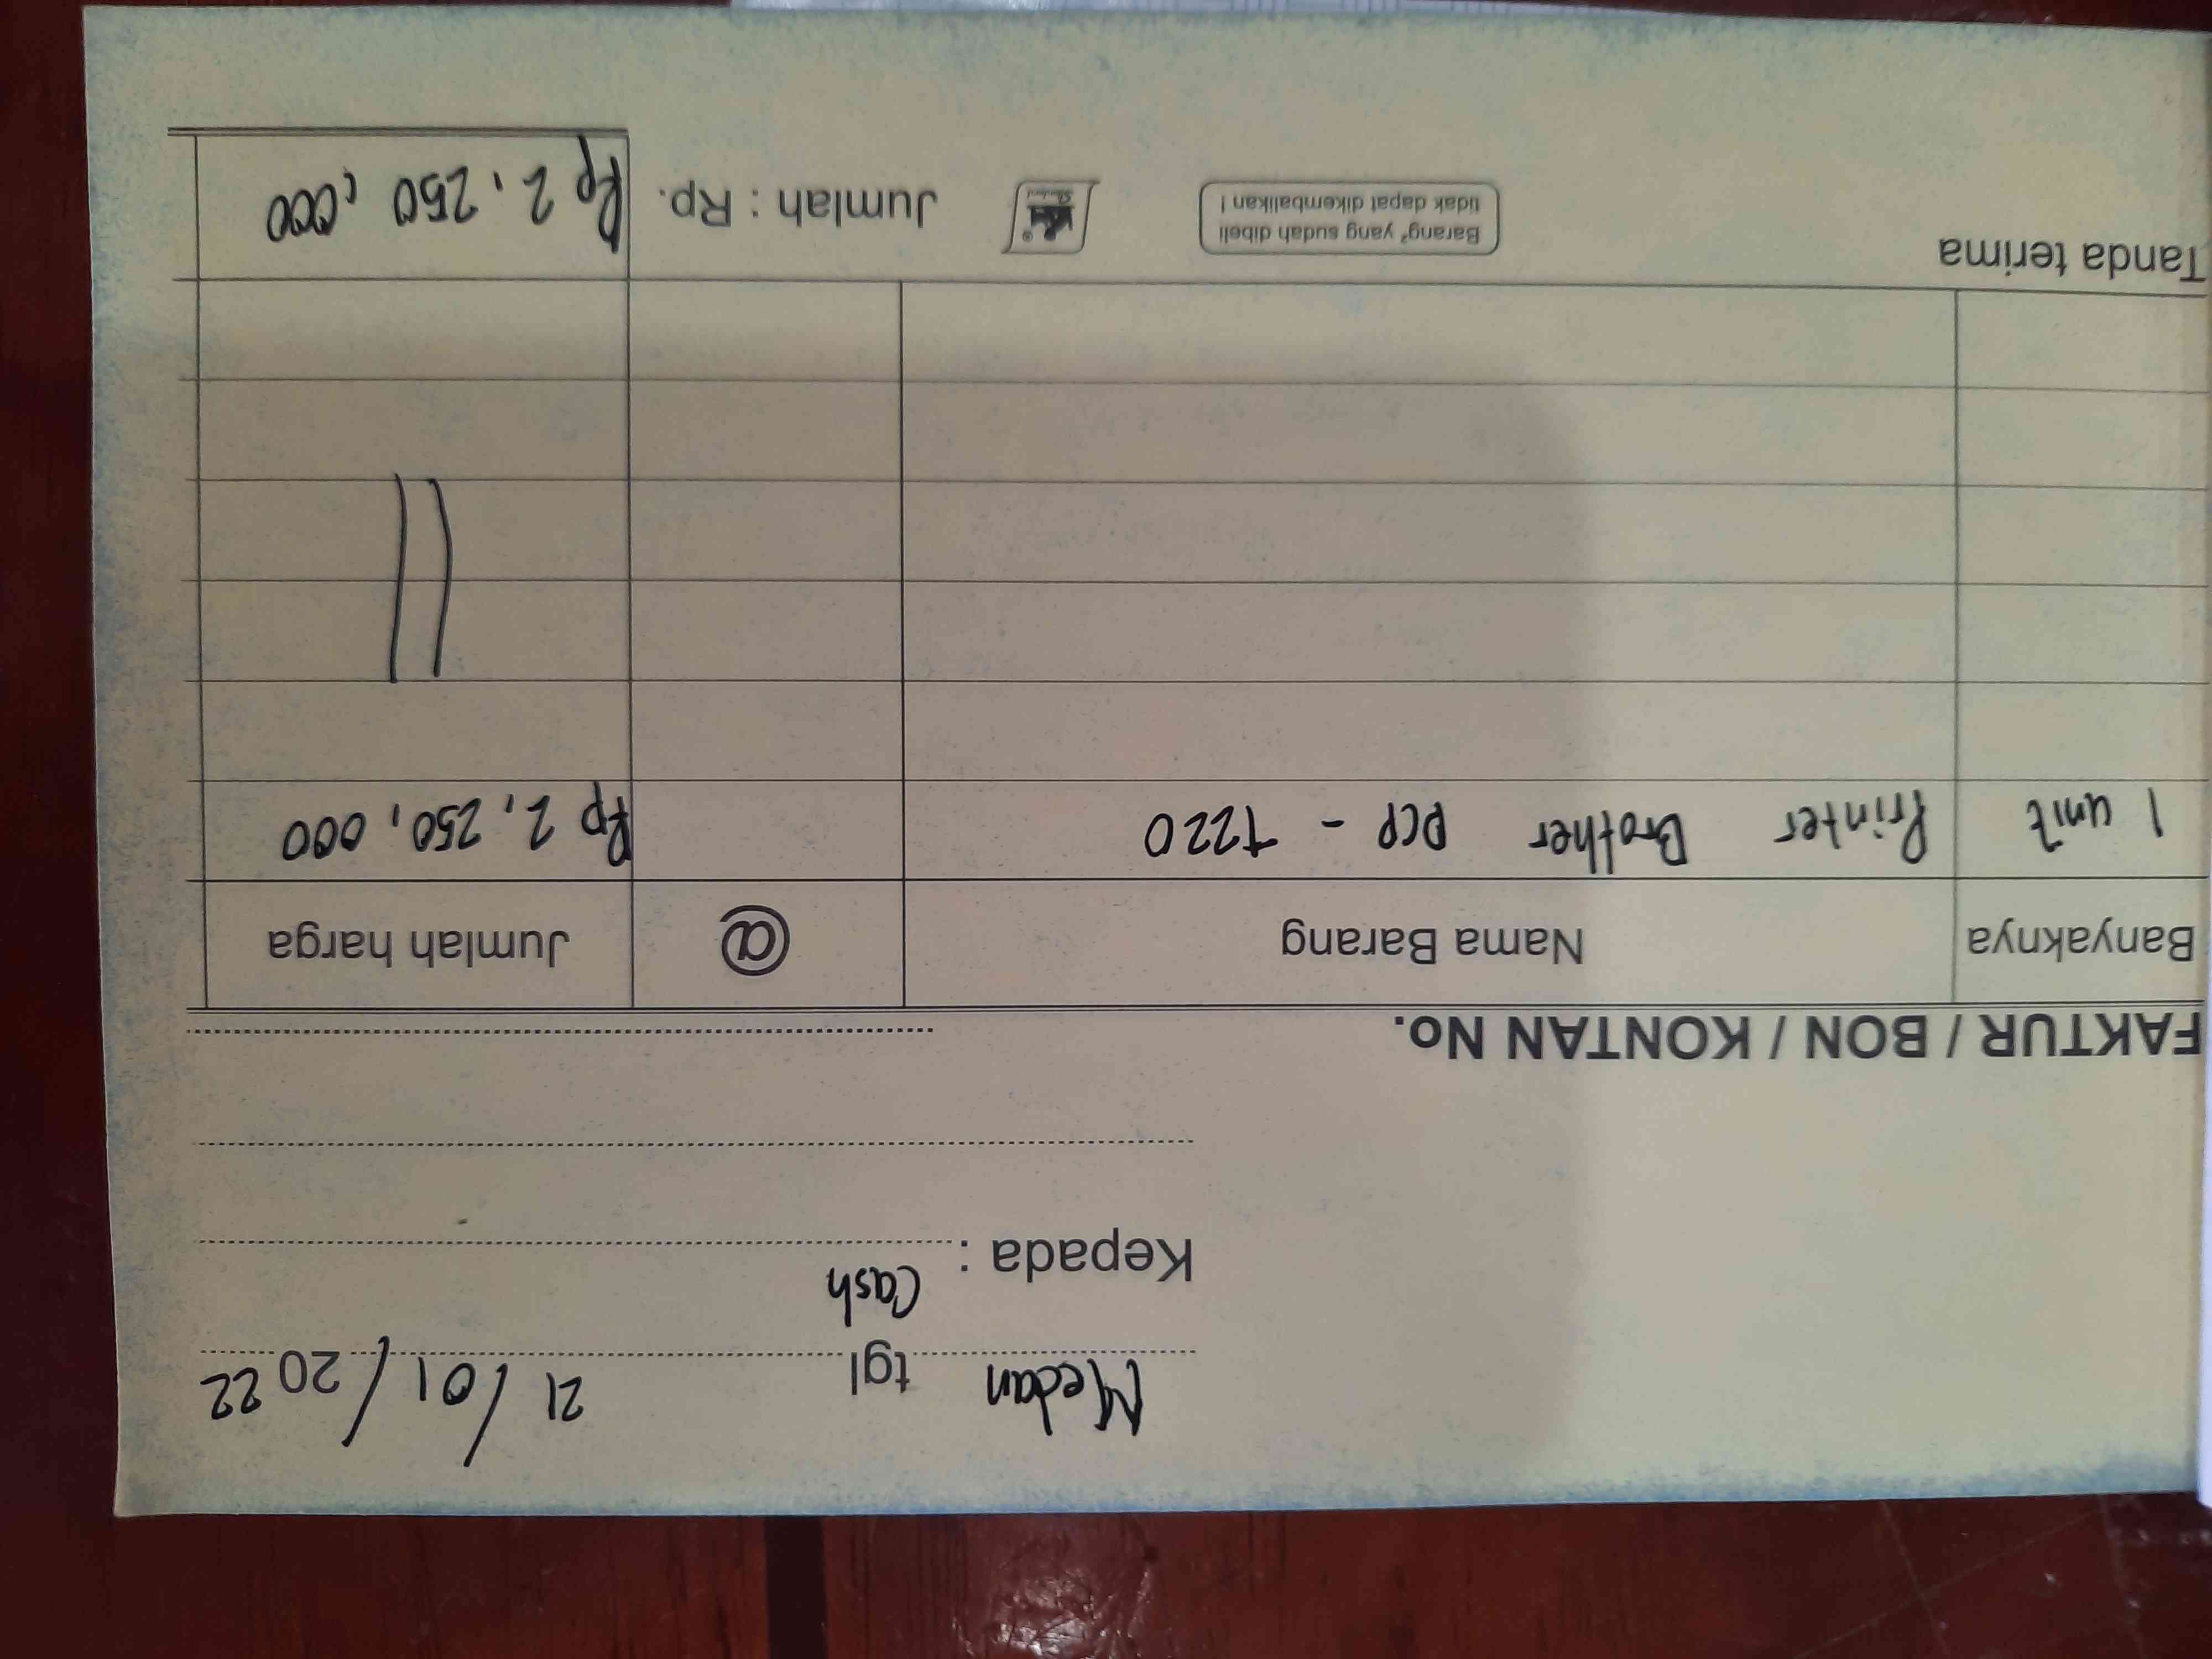 Medan tgl 21/01/2022
Kepada : Cash
FAKTUR / BON / KONTAN No.
Banyaknya Nama Barang @ Jumlah harga
1 unit Printer Brother DCP - T220 Rp 2,250,000
Tanda terima Barang² yang sudah dibeli Jumlah : Rp. Rp 2,250,000
tidak dapat dikembalikan !